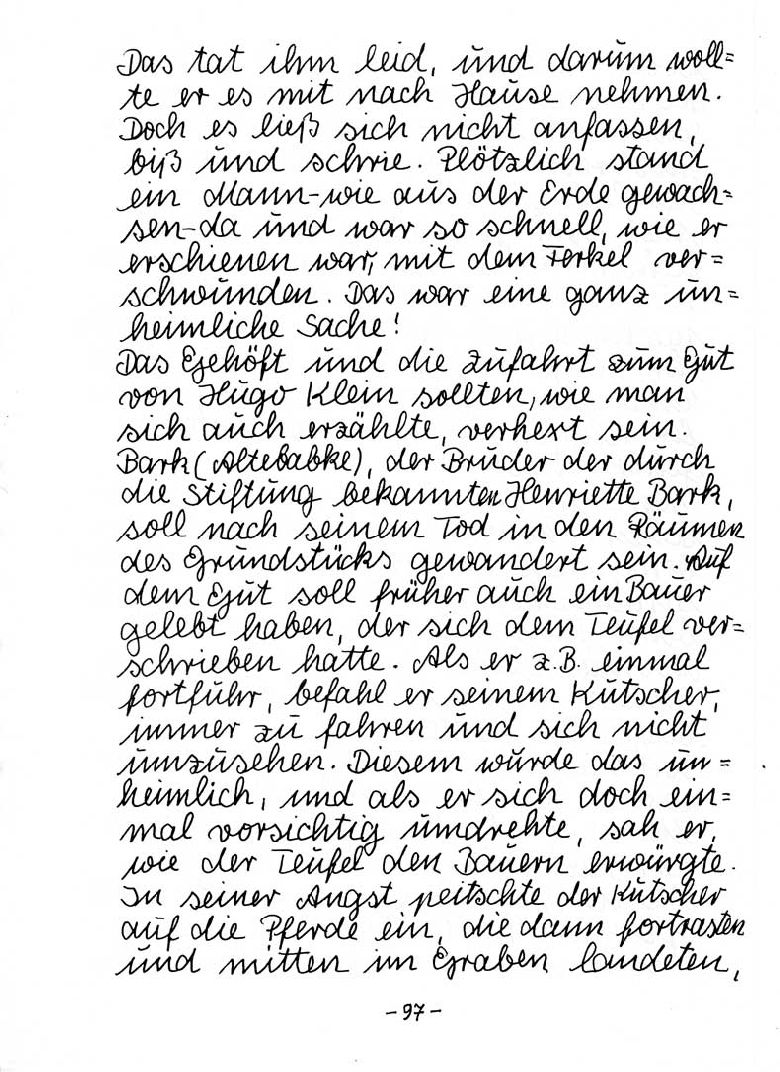 Das tat ihm leid, und darum woll=
te er es mit nach Hause nehmen.
Doch es ließ sich nicht anfassen,
biß und schrie. Plötzlich stand
ein Mann-wie aus der Erde gewach=
sen-da und war so schnell, wie er
erschienen war, mit dem Ferkel ver=
schwunden. Das war eine ganz un=
heimliche Sache!
Das Gehöft und die Zufahrt zum Gut
von Hugo Klein sollten, wie man
sich auch erzählte, verhext sein.
Bark (Altebabke), der Bruder der durch
die Stiftung bekannten Henriette Bark,
soll nach seinem Tod in den Räumen
des Grundstücks gewandert sein. Auf
dem Gut soll früher auch ein Bauer
gelebt haben, der sich dem Teufel ver=
schrieben hatte. Als er z.B. einmal
fortfuhr, befahl er seinem Kutscher,
immer zu fahren und sich nicht
umzusehen. Diesem wurde das un=
heimlich, und als er sich doch ein=
mal vorsichtig umdrehte, sah er,
wie der Teufel den Bauern erwürgte.
In seiner Angst peitschte der Kutscher
auf die Pferde ein, die dann fortrasten
und mitten im Graben landeten,
-97-